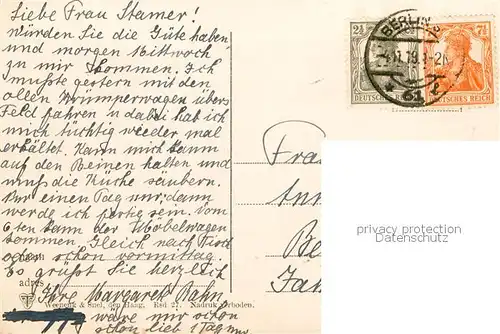 Liebe Frau Stamer!
Würden Sie die Güte haben
und morgen Mittwoch
zu mir kommen. Ich
mußte gestern mit den
ollen Krümperwagen übers
Feld fahren u dabei hat ich
mich tüchtig wieder mal
erkältet. Kann mich kaum
auf den Beinen halten und
muß die Küche säubern.
Nur einen Tag nur, dann
werde ich fertig sein. Vom
6ten kann der Möbelwagen
kommen. Gleich nach
oder schon vormittag.
So grüßt Sie herzlich
adres
Ihre Margarete Bahn
wäre mir schon
schon lieb 1 Tag nur
Weenenk & Snel, den Haag. Esd 27. Nadruk verboden.
2½
7½
DEUTSCHES
DEUTSCHES REICH
BERLIN
11.19.
61
Frau
Ann
Be
privacy protection
Datenschutz